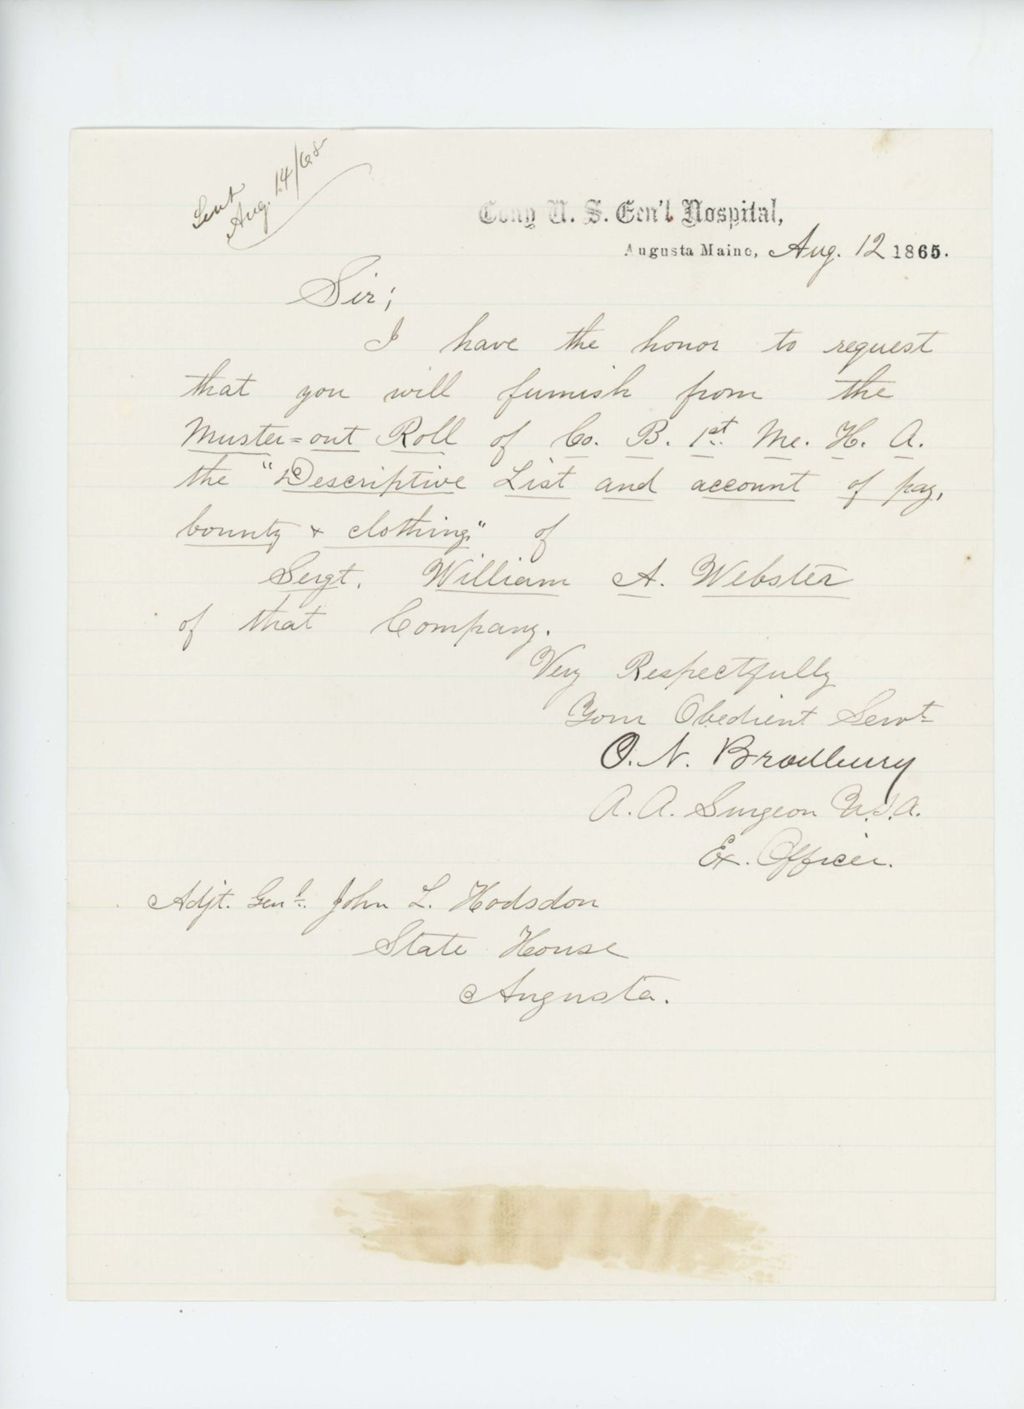 Sent
Aug. 14/65
Cony U. S. Gen'l Hospital,
Augusta Maine, Aug. 12 1865.
Sir;
I have the honor to request
that you will furnish from the
Muster=out Roll of Co. B. 1st. Me. H. A.
the "Descriptive List and account of pay,
bounty & clothing" of
Sergt. William A. Webster
of that Company.
Very Respectfully
Your Obedient Servt
O. N. Bradbury
A. A. Surgeon U.S.A.
Ex. Officer.
Adjt. Genl. John L. Hodsdon
State House
Augusta.